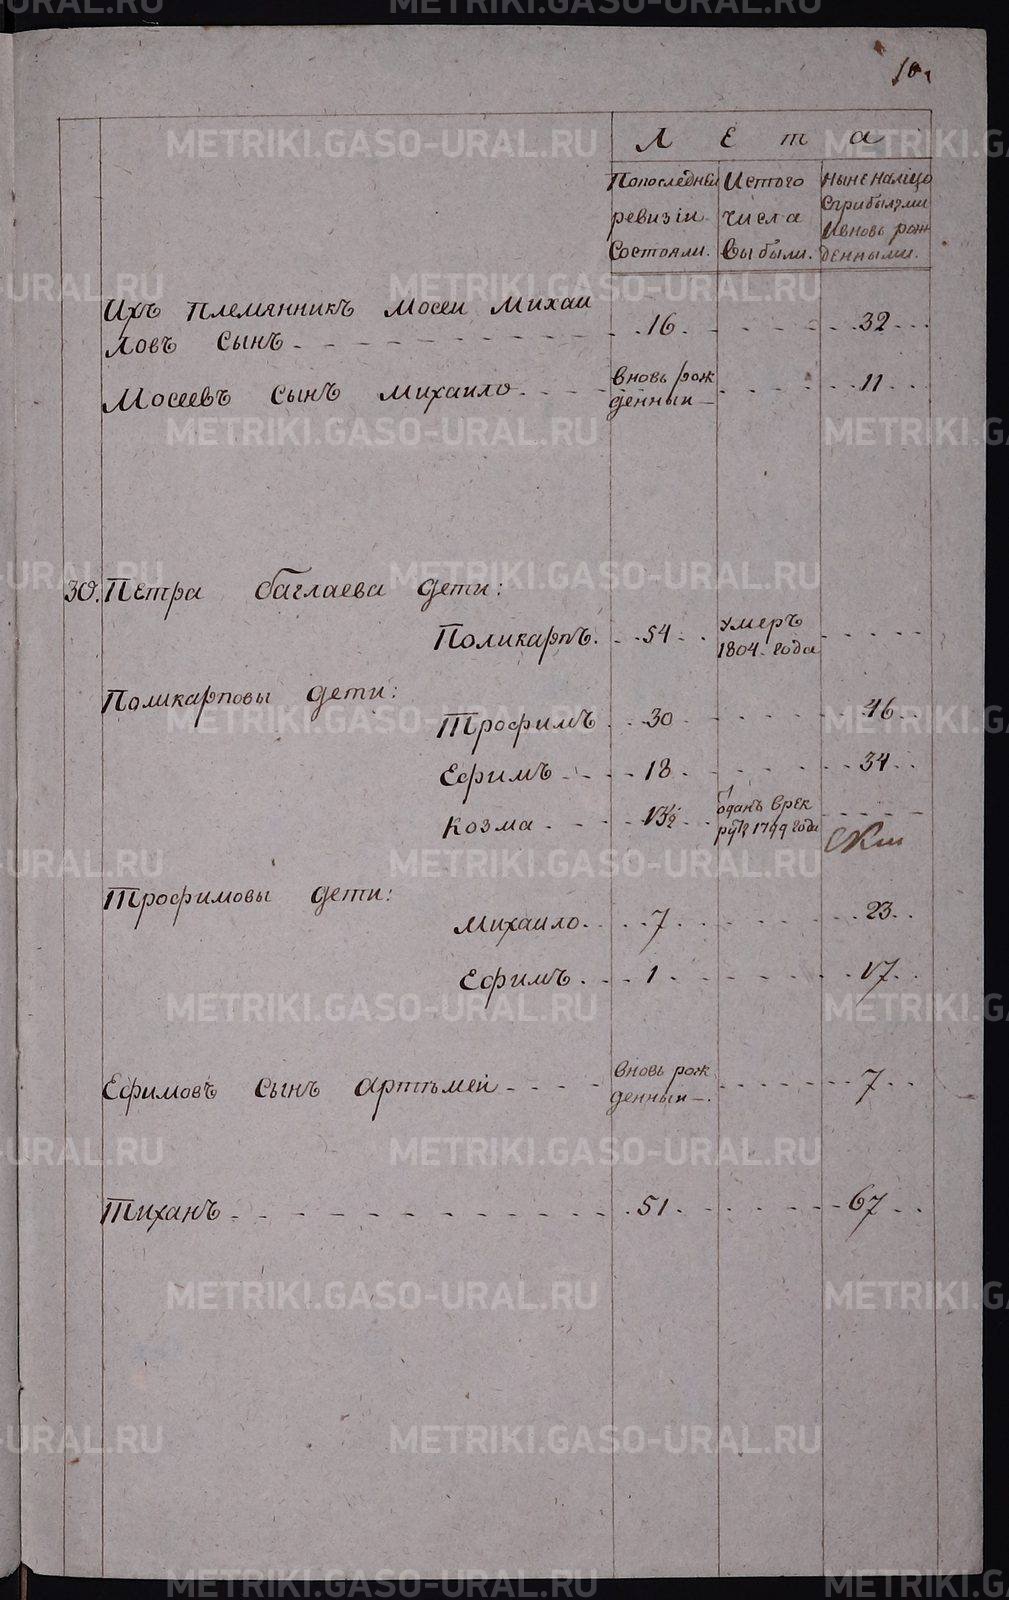 10.
Лета
Попоследнеи Истого ныне налицо
ревизіи числа сприбылыми
состояли. выбыли. ивновь рож
денными.
Ихъ племянникъ Мосеи Михаи
ловъ сынъ 16 32
Мосеевъ сынъ Михаило вновь рож 11
денныи
30. Петра Баглаева дети:
Поликарпъ. 54 умеръ
1804. года
Поликарповы дети:
Трофимъ 30 46
Ефимъ 18 34
Козма 13½ оданъ врек
руты 1799 года
Трофимовы дети:
Михаило 7 23
Ефимъ 1 17
Ефимовъ сынъ Артемей вновь рож 7
денныи
Тиханъ 51 67
METRIKI.GASO-URAL.RU